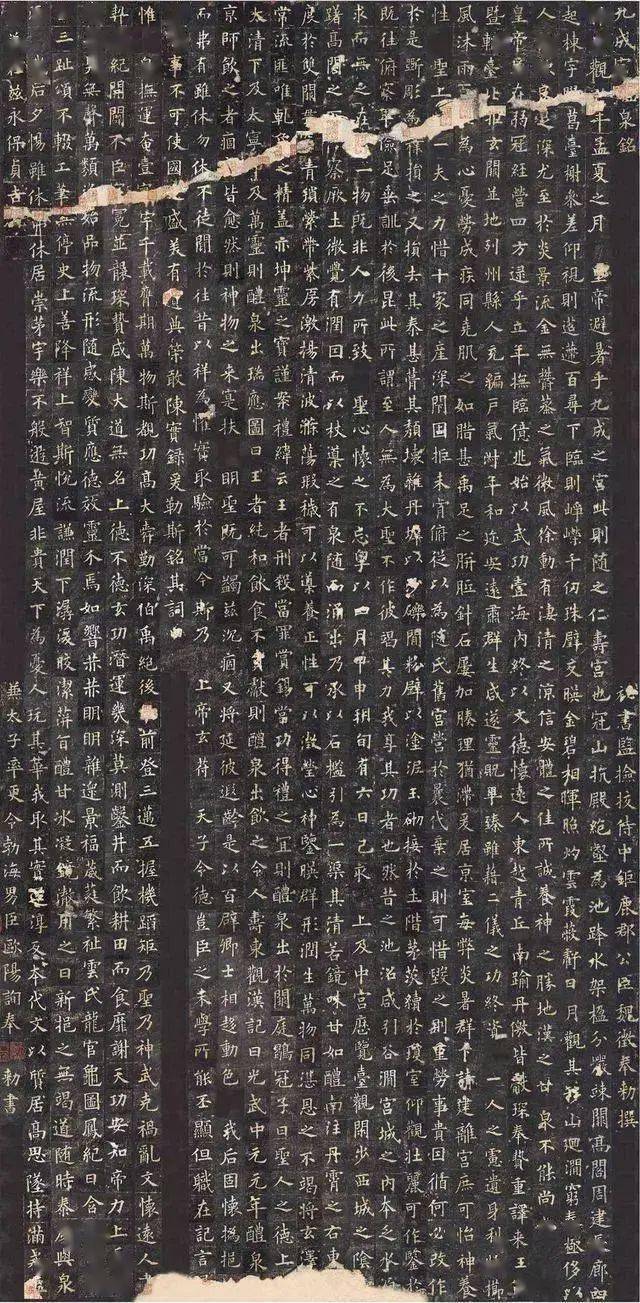 九成宮泉銘 祕書監檢挍侍中鉅鹿郡公臣魏徵奉勑撰
觀年孟夏之月 皇帝避暑乎九成之宮此則隨之仁壽宮也冠山抗殿絕壑為池跨水架楹分巖竦闕高閣周建長廊四
起棟宇膠葛臺榭參差仰視則迢遰百尋下臨則崢嶸千仞珠壁交暎金碧相暉照灼雲霞蔽虧日月觀其移山迴澗窮泰極侈以
人從欲良足深尤至於炎景流金無鬱蒸之氣微風徐動有淒清之涼信安體之佳所誠養神之勝地漢之甘泉不能尚
皇帝爰在弱冠經營四方逮乎立年撫臨億兆始以武功壹海內終以文德懷遠人東越青丘南踰丹儌皆獻琛奉贄重譯來王
暨軒臺北拒玄闕並地列州縣人充編戶氣淑年和迩安遠肅群生咸遂靈貺畢臻雖藉二儀之功終資 一人之慮遺身利物櫛
風沐雨百姓為心憂勞成疾同堯肌之如腊甚禹足之胼胝針石屢加腠理猶滯爰居京室每弊炎暑群下請建離宮庶可怡神養
性 聖上愛一夫之力惜十家之產深閉固拒未肯俯從以為隨氏舊宮營於曩代棄之則可惜毀之則重勞事貴因循何必改作
於是斲彫為樸損之又損去其泰甚葺其頹壞雜丹墀以沙礫間粉壁以塗泥玉砌接於土階茅茨續於瓊室仰觀壯麗可作鑒於
既往俯察卑儉足垂訓於後昆此所謂至人無為大聖不作彼竭其力我享其功者也然昔之池沼咸引谷澗宮城之內本乏水源
求而無之在乎一物既非人力所致 聖心懷之不忘粵以四月甲申朔旬有六日己亥 上及中宮歷覽臺觀閑步西城之陰躊
躇高閣之下俯察厥土微覺有潤因而以杖導之有泉隨而涌出乃承以石檻引為一渠其清若鏡味甘如醴南注丹霄之右東流
度於雙闕貫穿青瑣縈帶紫房激揚清波滌蕩瑕穢可以導養正性可以澂瑩心神鑒暎群形潤生萬物同湛恩之不竭將玄澤
常流匪唯乾象之精蓋亦坤靈之寶謹案禮緯云王者刑殺當罪賞錫當功得禮之宜則醴泉出於闕庭鶡冠子曰聖人之德上
大清下及太寧中及萬靈則醴泉出瑞應圖曰王者純和飲食不貢獻則醴泉出飲之令人壽東觀漢記曰光武中元元年醴泉
京師飲之者痼疾皆愈然則神物之來寔扶 明聖既可蠲茲沉痼又將延彼遐齡是以百辟卿士相趨動色 我后固懷撝挹
而弗有雖休勿休不徒聞於往昔以祥為懼實取驗於當今斯乃 上帝玄符 天子令德豈臣之末學所能丕顯但職在記言
事不可使國之盛美有遺典策敢陳實錄爰勒斯銘其詞曰
惟皇撫運奄壹寰宇千載膺期萬物斯覩功高大舜勤深伯禹絕後前登三邁五握機蹈矩乃聖乃神武克禍亂文懷遠人
紀開闢不臣冠冕並襲琛贄咸陳大道無名上德不德玄功潛運幾深莫測鑿井而飲耕田而食靡謝天功安知帝力上
無聲萬類資始品物流形隨感變質應德效靈介焉如響赫赫明明雜遝景福葳蕤繁祉雲氏龍官龜圖鳳紀日含
三趾頌不輟工筆無停史上善降祥上智斯悅流謙潤下潺湲皎潔蓱旨醴甘冰凝鏡澈用之日新挹之無竭道隨時泰慶與泉
后夕惕雖休弗休居崇茅宇樂不般遊黃屋非貴天下為憂人玩其華我取其實還淳反本代文以質居高思墜持滿戒溢
茲永保貞吉 兼太子率更令勃海男臣歐陽詢奉勑書